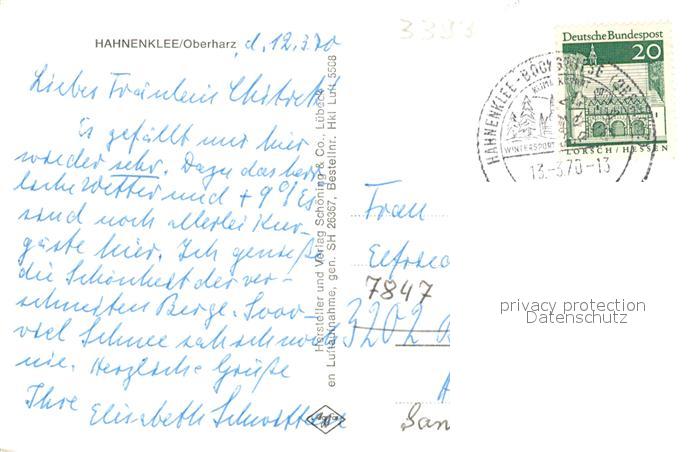 3353
HAHNENKLEE/Oberharz, d. 12.3.70
Liebes Fräulein
Es gefällt mir hier
wieder sehr. Dazu das herr-
liche Wetter und + 9°! Es
sind noch allerlei Kur-
gäste hier. Ich genieße
die Schönheit der ver-
schneiten Berge. Soo
viel Schnee sah ich noch
nie. Herzliche Grüße
Ihre Elisabeth
Hersteller und Verlag Schöning & Co., Lübeck
en Luftaufnahme, gen. SH 26367, Bestellnr. Hkl Luft 5508
Deutsche Bundespost
20
LORSCH/HESSEN
HAHNENKLEE-BOCKSWIESE
WINTERSPORT
13.-3.70-13
Frau
Elfriede
7847
3202
privacy protection
Datenschutz